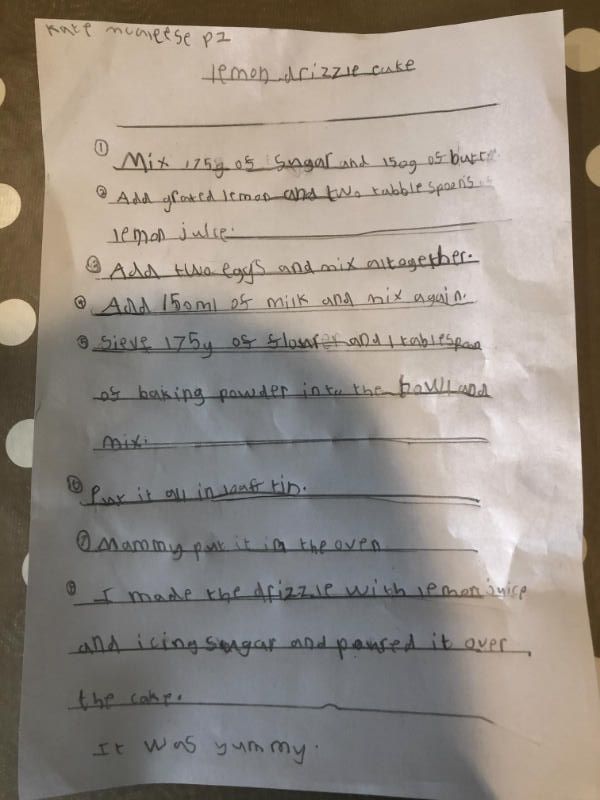 Kate mcaleese p2
lemon drizzle cake
① Mix 175g of sugar and 150g of butter.
② Add grated lemon and two tabblespoons of
lemon juice.
③ Add two eggs and mix altogether.
④ Add 150ml of milk and mix again.
⑤ Sieve 175g of flourer and 1 tablespoon
of baking powder into the bowl and
mix.
⑥ Put it all in loaf tin.
⑦ Mammy put it in the oven
⑧ I made the drizzle with lemon juice
and icing sugar and poured it over
the cake.
It was yummy.